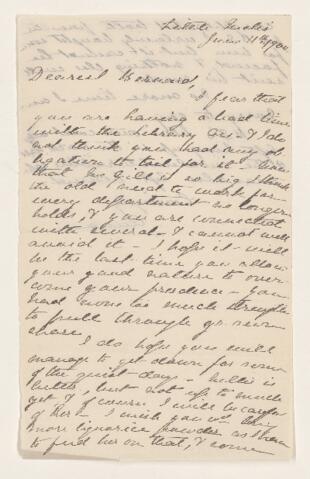 June 11th 1900
Dearest Bernard,
I fear that
you are having a hard time
with the Library &c. & I do
not think you had any ob-
ligation to toil for it - now
that McGill is so big I think
the old idea to work for
every department no longer
holds, & you are connected
with several - & cannot well
avoid it - I hope it will
be the last time you allow
your good nature to over-
come your prudence - you
had none too much strength
to pull through yr. own
share
I do hope you will
manage to get down for some
of the quiet days - Nellie is
better, but not up to much
yet & of course I will be careful
of her - I wish you wd. bring
more liquorice powder as I have
to feed her on that, & some